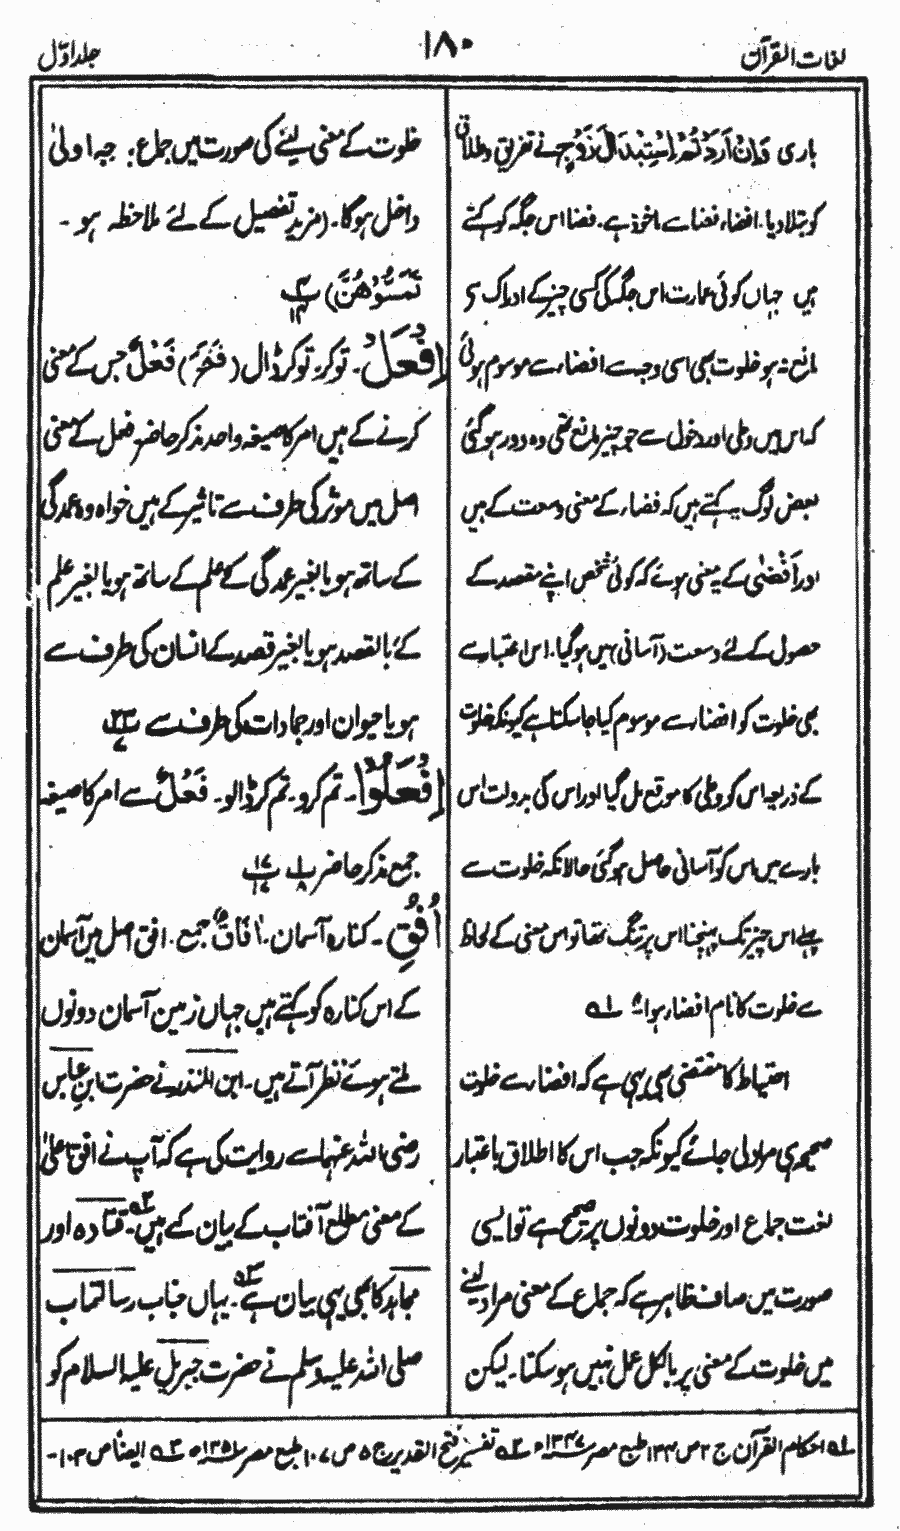 لغات القرآن
۱۸۰
جلد اوّل
باری وَاِنْ اَرَدْتُّمُ اسْتِبْدَالَ زَوْجٍ نے تفریق و طلاق
کو بتلا دیا۔ افضاء فضا سے ماخوذ ہے۔ فضا اس جگہ کو کہتے
ہیں جہاں کوئی عمارت اس جگہ کی کسی چیز کے ادراک سے
مانع نہ ہو خلوت بھی اسی وجہ سے افضاء سے موسوم ہوئی
کہ اس میں وطی اور دخول سے جو چیز مانع تھی وہ دور ہو گئی
بعض لوگ یہ کہتے ہیں کہ فضاء کے معنی وسعت کے ہیں
اور اَفْضٰی کے یہ معنی ہوئے کہ کوئی شخص اپنے مقصد کے
حصول کے لئے وسعت (آسانی) میں ہو گیا۔ اس اعتبار سے
بھی خلوت کو افضار سے موسوم کیا جا سکتا ہے کیونکہ خلوت
کے ذریعہ اس کو وطی کا موقع مل گیا اور اس کی بدولت اس
بارے میں اس کو آسانی حاصل ہو گئی حالانکہ خلوت سے
پہلے اس چیز تک پہنچنا اس پر تنگ تھا تو اس معنی کے لحاظ
سے خلوت کا نام افضار ہوا۔ ؎۱
احتیاط کا مقتضیٰ بھی یہی ہے کہ افضار سے خلوت
صحیحہ ہی مراد لی جائے کیونکہ جب اس کا اطلاق باعتبار
لغت جماع اور خلوت دونوں پر صحیح ہے تو ایسی
صورت میں صاف ظاہر ہے کہ جماع کے معنی مراد لینے
میں خلوت کے معنی پر بالکل عمل نہیں ہو سکتا۔ لیکن
خلوت کے معنی لینے کی صورت میں جماع بدرجہ اولیٰ
داخل ہوگا۔ (مزید تفصیل کے لئے ملاحظہ ہو۔
تَمَسُّوْهُنَّ) ۴ ۱۴
اِفْعَلْ۔ تو کر۔ تو کر ڈال (فَتَحَ) فَعْلٌ جس کے معنی
کرنے کے ہیں امر کا صیغہ واحد مذکر حاضر۔ فعل کے معنی
اصل میں موثر کی طرف سے تاثیر کے ہیں خواہ وہ عمدگی
کے ساتھ ہو یا بغیر عمدگی کے علم کے ساتھ ہو یا بغیر علم
کے بالقصد ہو یا بغیر قصد کے انسان کی طرف سے
ہو یا حیوان اور جمادات کی طرف سے ۲۳ ۷
اِفْعَلُوْا۔ تم کرو۔ تم کر ڈالو۔ فَعْلٌ سے امر کا صیغہ
جمع مذکر حاضر ۱ ۸ ۱۷ ۱۷
اُفُقِ۔ کنارہ آسمان۔ اٰفَاقٌ جمع۔ افق اصل میں آسمان
کے اس کنارہ کو کہتے ہیں جہاں زمین آسمان دونوں
ملتے ہوئے نظر آتے ہیں۔ ابن المنذر نے حضرت ابن عباس
رضی اللہ عنہما سے روایت کی ہے کہ آپ نے افق اعلیٰ
کے معنی مطلع آفتاب کے بیان کئے ہیں۔؎۲ قتادہ اور
مجاہد کا بھی یہی بیان ہے؎۳۔ یہاں جناب رسالتمآب
صلی اللہ علیہ وسلم نے حضرت جبریل علیہ السلام کو
؎۱ احکام القرآن ج ۲ ص ۱۳۴ طبع مصر ۱۳۴۷ھ ؎۲ تفسیر فتح القدیر ج ۵ ص ۱۰۷ طبع مصر ۱۳۵۱ھ ؎۳ ایضاً ص ۱۰۳۔